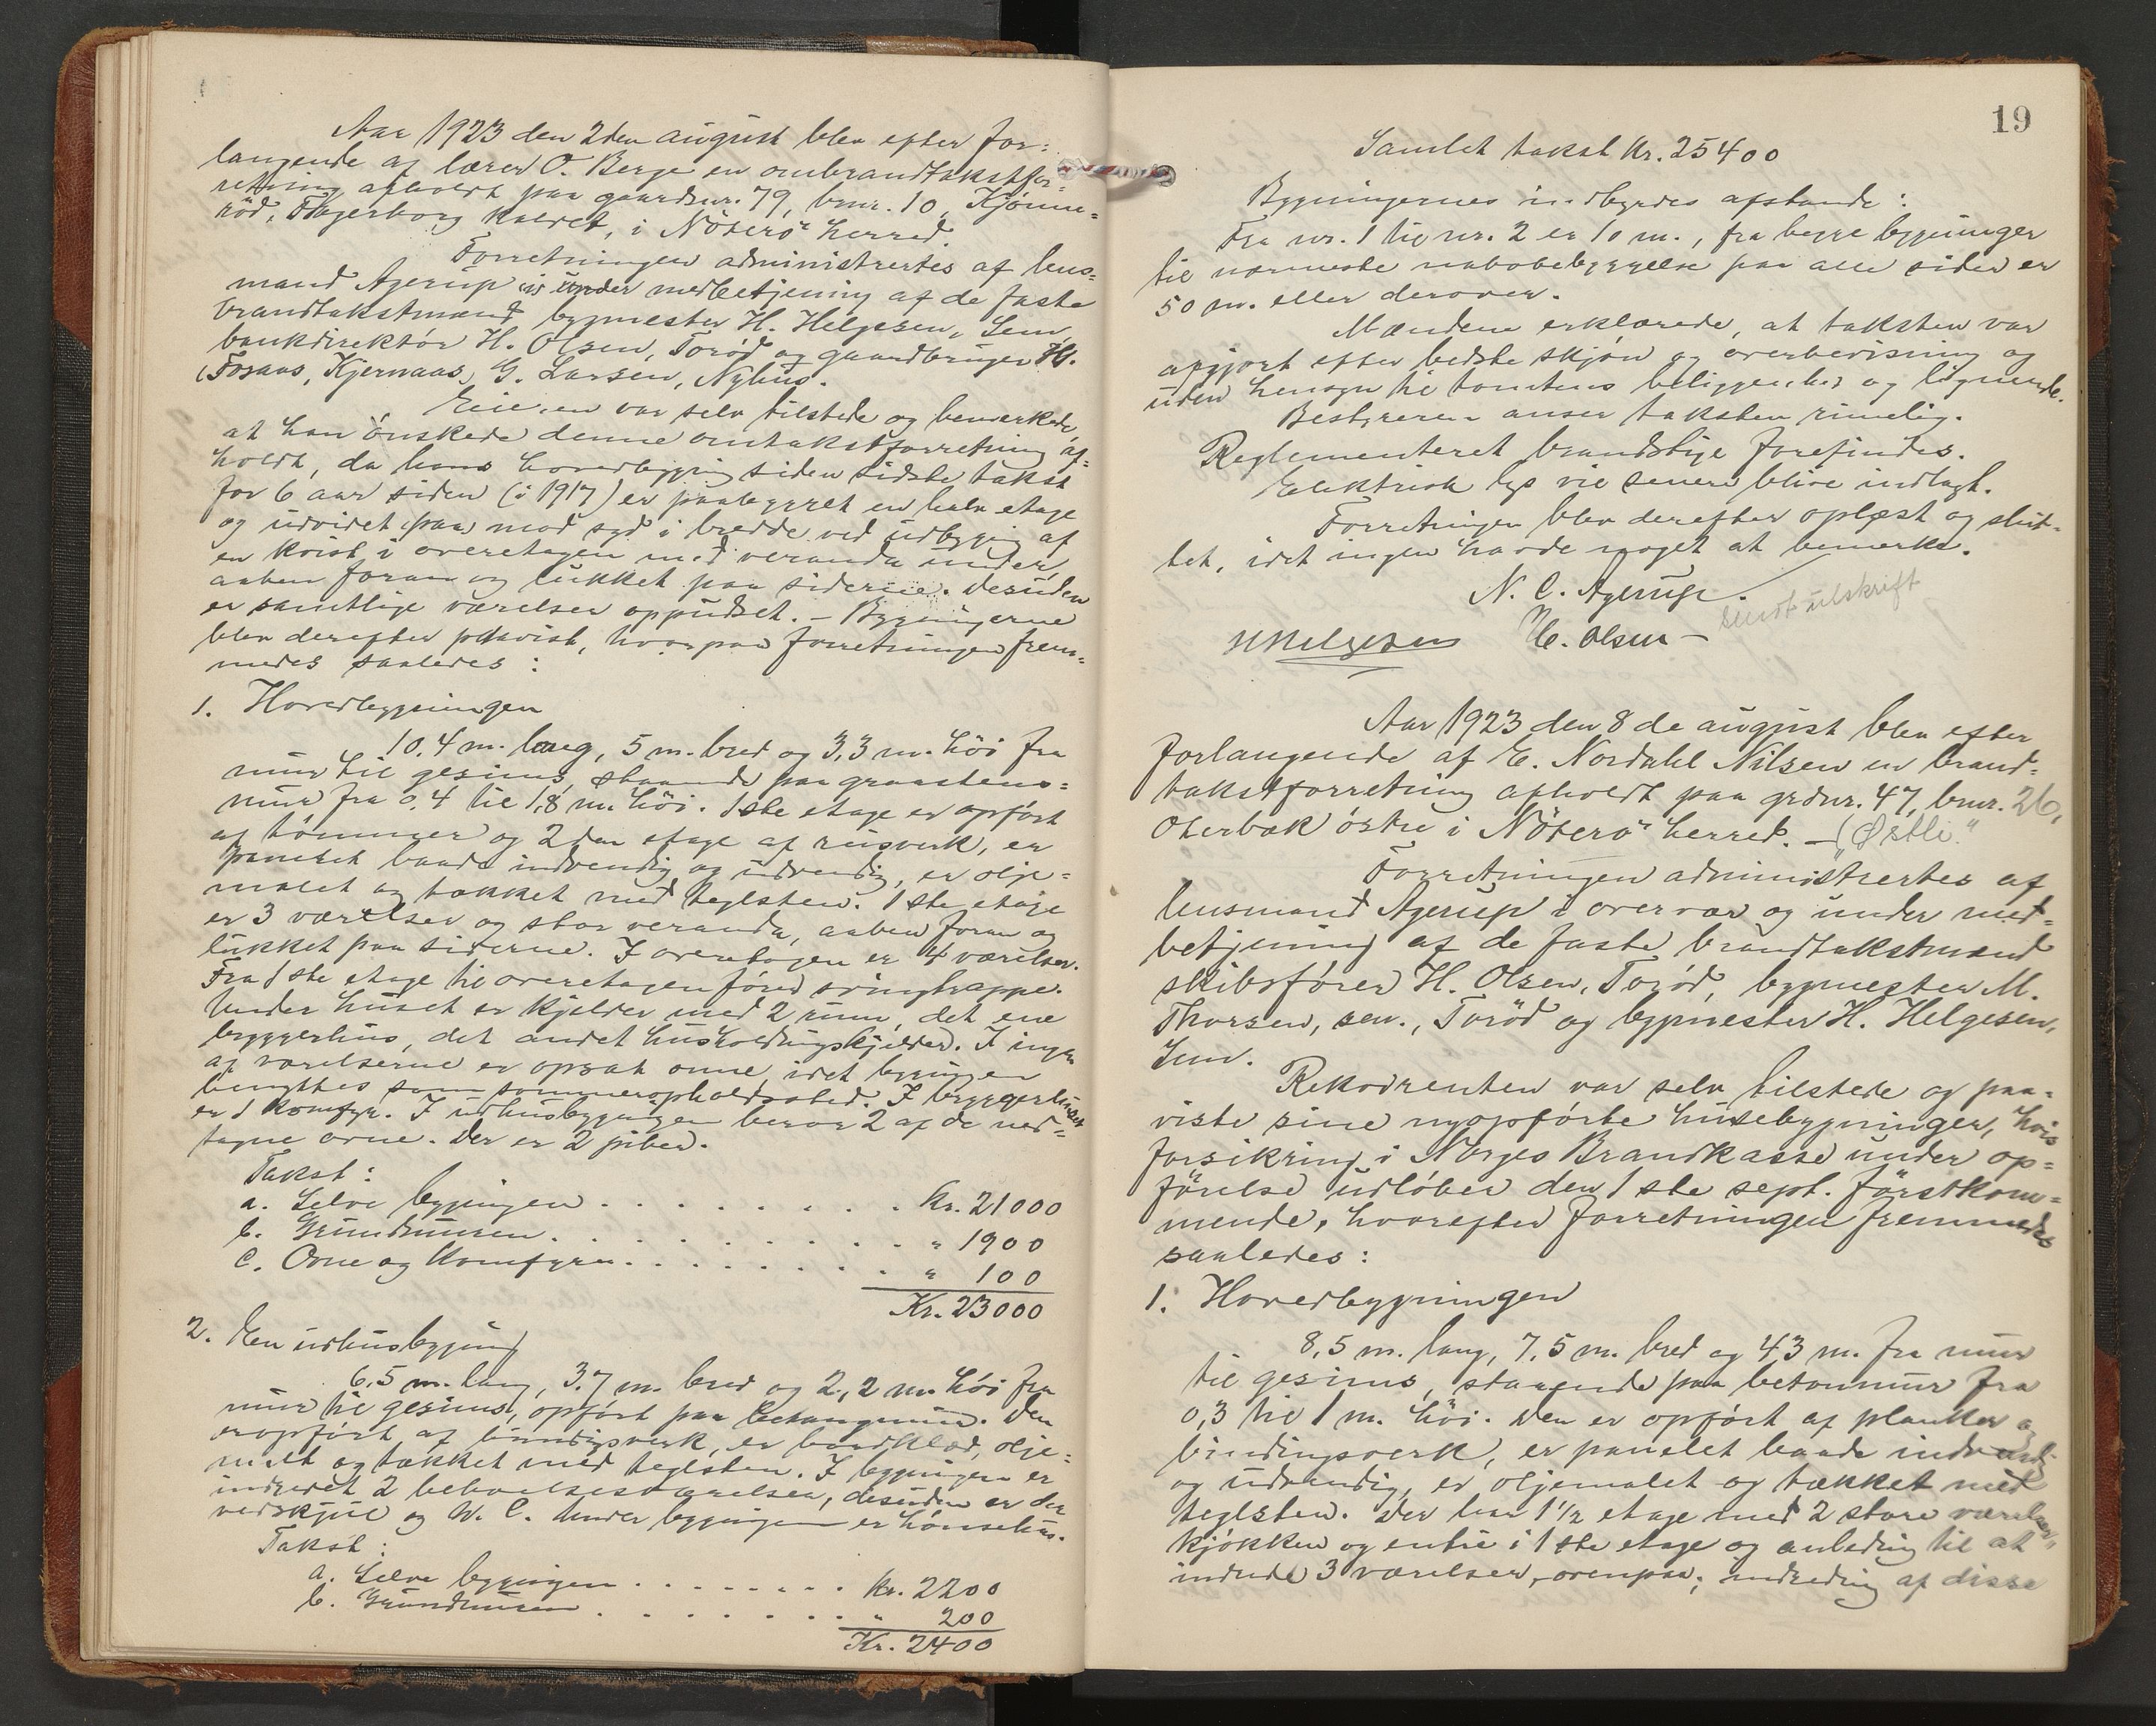 Aar 1923 den 2den august blev efter for-
langende af lærer O. Berge en ombrandtakstfor-
retning afholdt paa gaardsnr. 79, brnr. 10, Kjønne-
röd, Fagerborg kaldet, i Nöterö herred.
Forretningen administrertes af lens-
mand Agerup under medbetjening af de faste
brandtakstmænd bygmester H. Helgesen, Sem,
bankdirektör H. Olsen, Toröd og gaardbruger H.
Fosaas, Kjernaas, G. Larsen, Nyhus.
Eieren var selv tilstede og bemerkede,
at han önskede denne omtakstforretning af-
holdt, da hans hovedbygning siden sidste takst
for 6 aar siden (i 1917) er paabygget en halv etage
og utvidet (paa) mod syd i bredde ved utbygning af
en kvist i overetagen med veranda under,
aaben foran og lukket paa siderne. Desuden
er samtlige værelser oppudset. – Bygningerne
blev derefter paavist, hvorpaa forretningen frem-
medes saaledes:
1. Hovedbygningen
10.4 m. lang, 5 m. bred og 3,3 m. höi fra
mur til gesims, staaende paa graastens-
mur fra 0,4 til 1,8 m. höi. 1ste etage er opfört
af tömmer og 2den etage af reisverk, er
panelet baade indvendig og udvendig, er olje-
malet og tækket med teglsten. I 1ste etage
er 3 værelser og stor veranda, aaben foran og
lukket paa siderne. I overetagen er 4 værelser.
Fra 1ste etage til overetagen förer svingtrappe.
Under huset er kjelder med 2 rum, det ene
bryggerhus, det andet husholdningskjelder. I ingen
af værelserne er opsat ovne, idet bygningen
benyttes som sommeropholdssted. I bryggerhuset
er 1 komfyr. I udhusbygningen beror 2 af de ned-
tagne ovne. Der er 2 piber.
Takst:
a. Selve bygningen . . . . . . . . . Kr. 21000
b. Grundmuren . . . . . . . . . . " 1900
c. Ovne og komfyren . . . . . . . . " 100
Kr. 23000
2. Den udhusbygning
6,5 m. lang, 3,7 m. bred og 2,2 m. höi fra
mur til gesims, opfört paa betongmur. Den
er opfört af bindingsverk, er bordklæd, olje-
malt og tækket med teglsten. I bygningen er
indredet 2 beboelsesværelser, desuden er der
vedskjul og W. C. Under bygningen er hönsehus.
Takst:
a. Selve bygningen . . . . . . . . Kr. 2200
b. Grundmuren . . . . . . . . " 200
Kr. 2400
19
Samlet takst Kr. 25400
Bygningernes indbyrdes afstande:
Fra nr. 1 til nr. 2 er 10 m., fra begge bygninger
til nærmeste nabobebyggelse paa alle sider er
50 m. eller derover.
Mændene erklærede, at taksten var
avgjort efter bedste skjön og overbevisning og
uden hensyn til tomtens beliggenhed og lignende.
Bestyreren anser taksten rimelig.
Reglementeret brandstige forefindes.
Elektrisk lys vil senere blive indlagt.
Forretningen blev derefter oplæst og slut-
tet, idet ingen havde noget at bemerke.
N. C. Agerup.
utskrift
H Helgesen H. Olsen –
Aar 1923 den 8de august blev efter
forlangende af E. Nordahl Nilsen en brand-
takstforretning afholdt paa grdnr. 47, brnr. 26,
Oterbæk östre i Nöterö herred. – "Østli"
Forretningen administrertes af
lensmand Agerup i overvær og under med-
betjening af de faste brandtakstmænd
skibsförer H. Olsen, Toröd, bygmester M.
Thorsen, sen., Toröd og bygmester H. Helgesen,
Sem.
Rekvirenten var selv tilstede og paa-
viste sine nyopförte husebygninger, hvis
forsikring i Norges Brandkasse under op-
förelse udlöber den 1ste sept. förstkom-
mende, hvorefter forretningen fremmedes
saaledes:
1. Hovedbygningen
8,5 m. lang, 7,5 m. bred og 43 m. fra mur
til gesims, staaende paa betonmur fra
0,3 til 1 m. höi. Den er opfört af planker og
bindingsverk, er panelet baade indvendig
og udvendig, er oljemalet og tækket med
teglsten. Der har 1 1/2 etage med 2 store værelser,
kjökken og entré i 1ste etage og anledning til at
indrede 3 værelser ovenpaa; indredning af disse